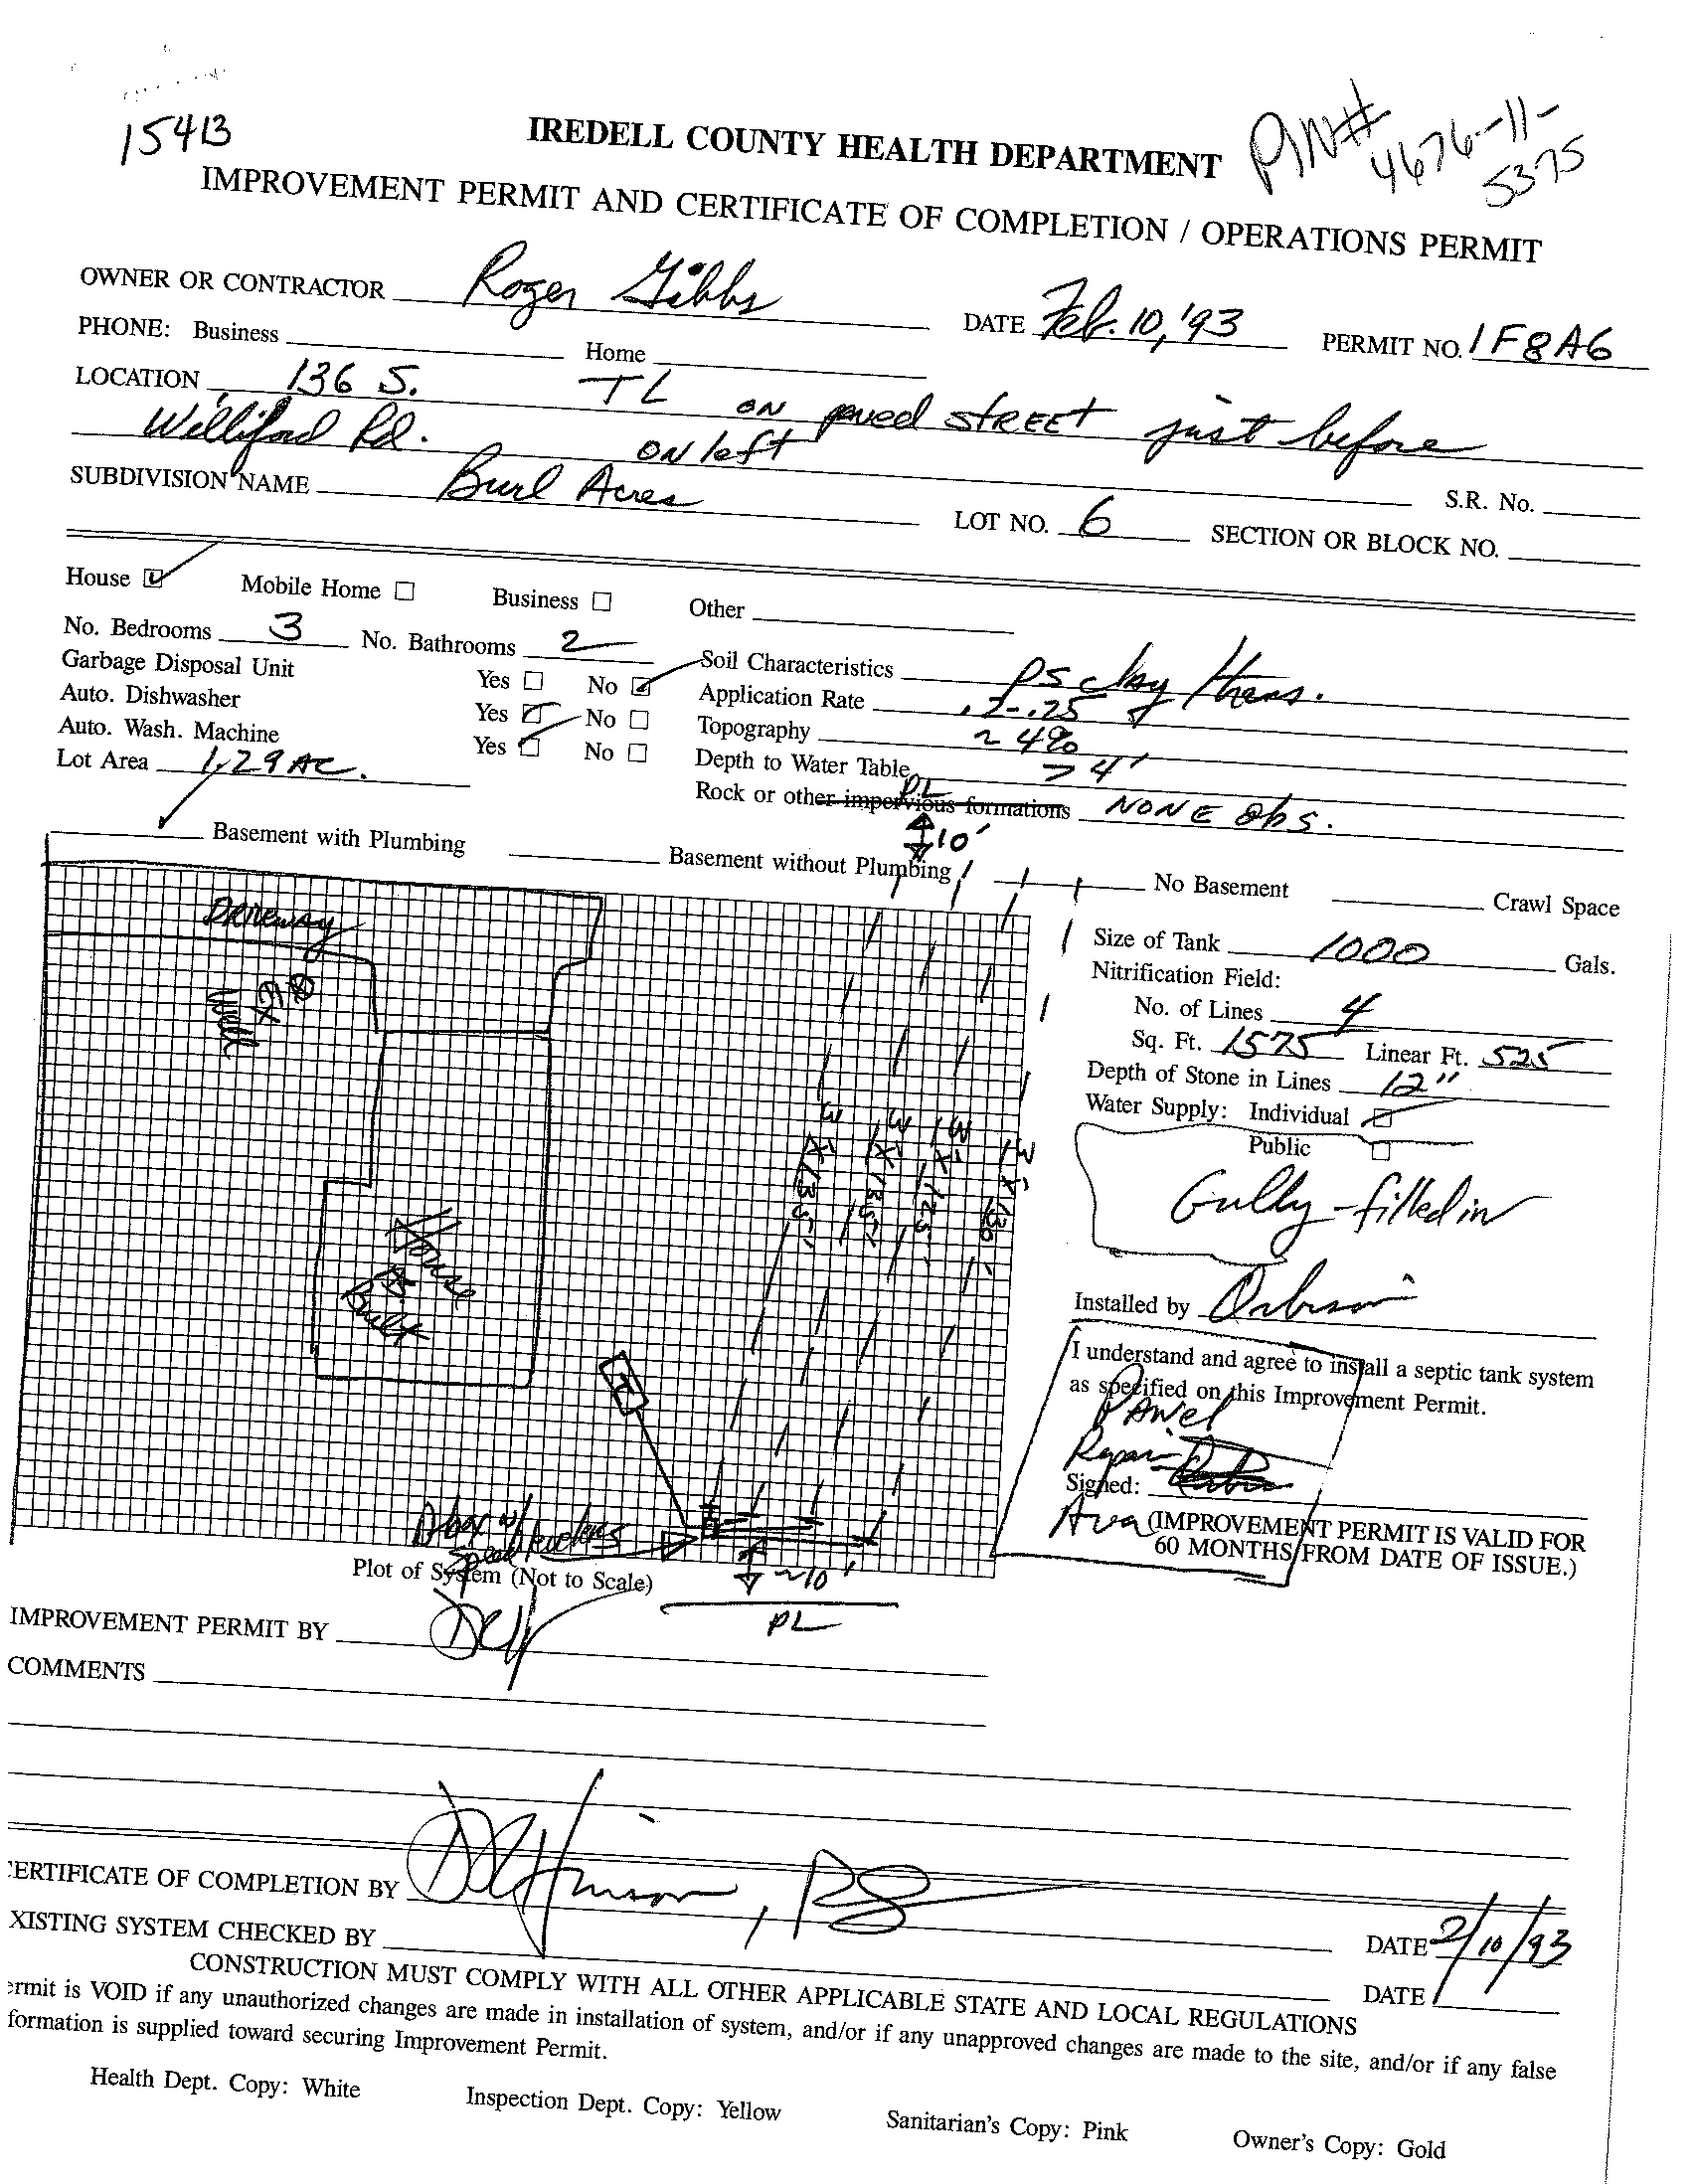 15413
PIN# 4676-11-
5375
IREDELL COUNTY HEALTH DEPARTMENT
IMPROVEMENT PERMIT AND CERTIFICATE OF COMPLETION / OPERATIONS PERMIT
OWNER OR CONTRACTOR Roger Gibbs DATE Feb. 10, '93 PERMIT NO. 1F8A6
PHONE: Business Home
LOCATION 136 S. TL on paved STREET just before
Williford Rd. on left S.R. No.
SUBDIVISION NAME Burl Acres LOT NO. 6 SECTION OR BLOCK NO.
House Mobile Home Business Other
No. Bedrooms 3 No. Bathrooms 2 Soil Characteristics PS clay
Garbage Disposal Unit Yes No Application Rate .2-.25
Auto. Dishwasher Yes No Topography ~ 4%
Auto. Wash. Machine Yes No Depth to Water Table > 4'
Lot Area 1.29 AC. Rock or other impervious formations NONE Obs.
PL
10'
Basement with Plumbing Basement without Plumbing No Basement Crawl Space
Driveway
Ex
Well
House
Built
3' x 135'
3' x 135'
3' x 125'
3' x 130'
T
D-box w/
speed levelers
~10'
PL
Plot of System (Not to Scale)
Size of Tank 1000 Gals.
Nitrification Field:
No. of Lines 4
Sq. Ft. 1575 Linear Ft. 525
Depth of Stone in Lines 12"
Water Supply: Individual
Public
Gully - filled in
Installed by
I understand and agree to install a septic tank system
as specified on this Improvement Permit.
Panel
Repair
Signed:
Area
(IMPROVEMENT PERMIT IS VALID FOR
60 MONTHS FROM DATE OF ISSUE.)
IMPROVEMENT PERMIT BY
COMMENTS
ERTIFICATE OF COMPLETION BY , RS DATE 2/10/93
XISTING SYSTEM CHECKED BY DATE
CONSTRUCTION MUST COMPLY WITH ALL OTHER APPLICABLE STATE AND LOCAL REGULATIONS
ermit is VOID if any unauthorized changes are made in installation of system, and/or if any unapproved changes are made to the site, and/or if any false
formation is supplied toward securing Improvement Permit.
Health Dept. Copy: White Inspection Dept. Copy: Yellow Sanitarian's Copy: Pink Owner's Copy: Gold